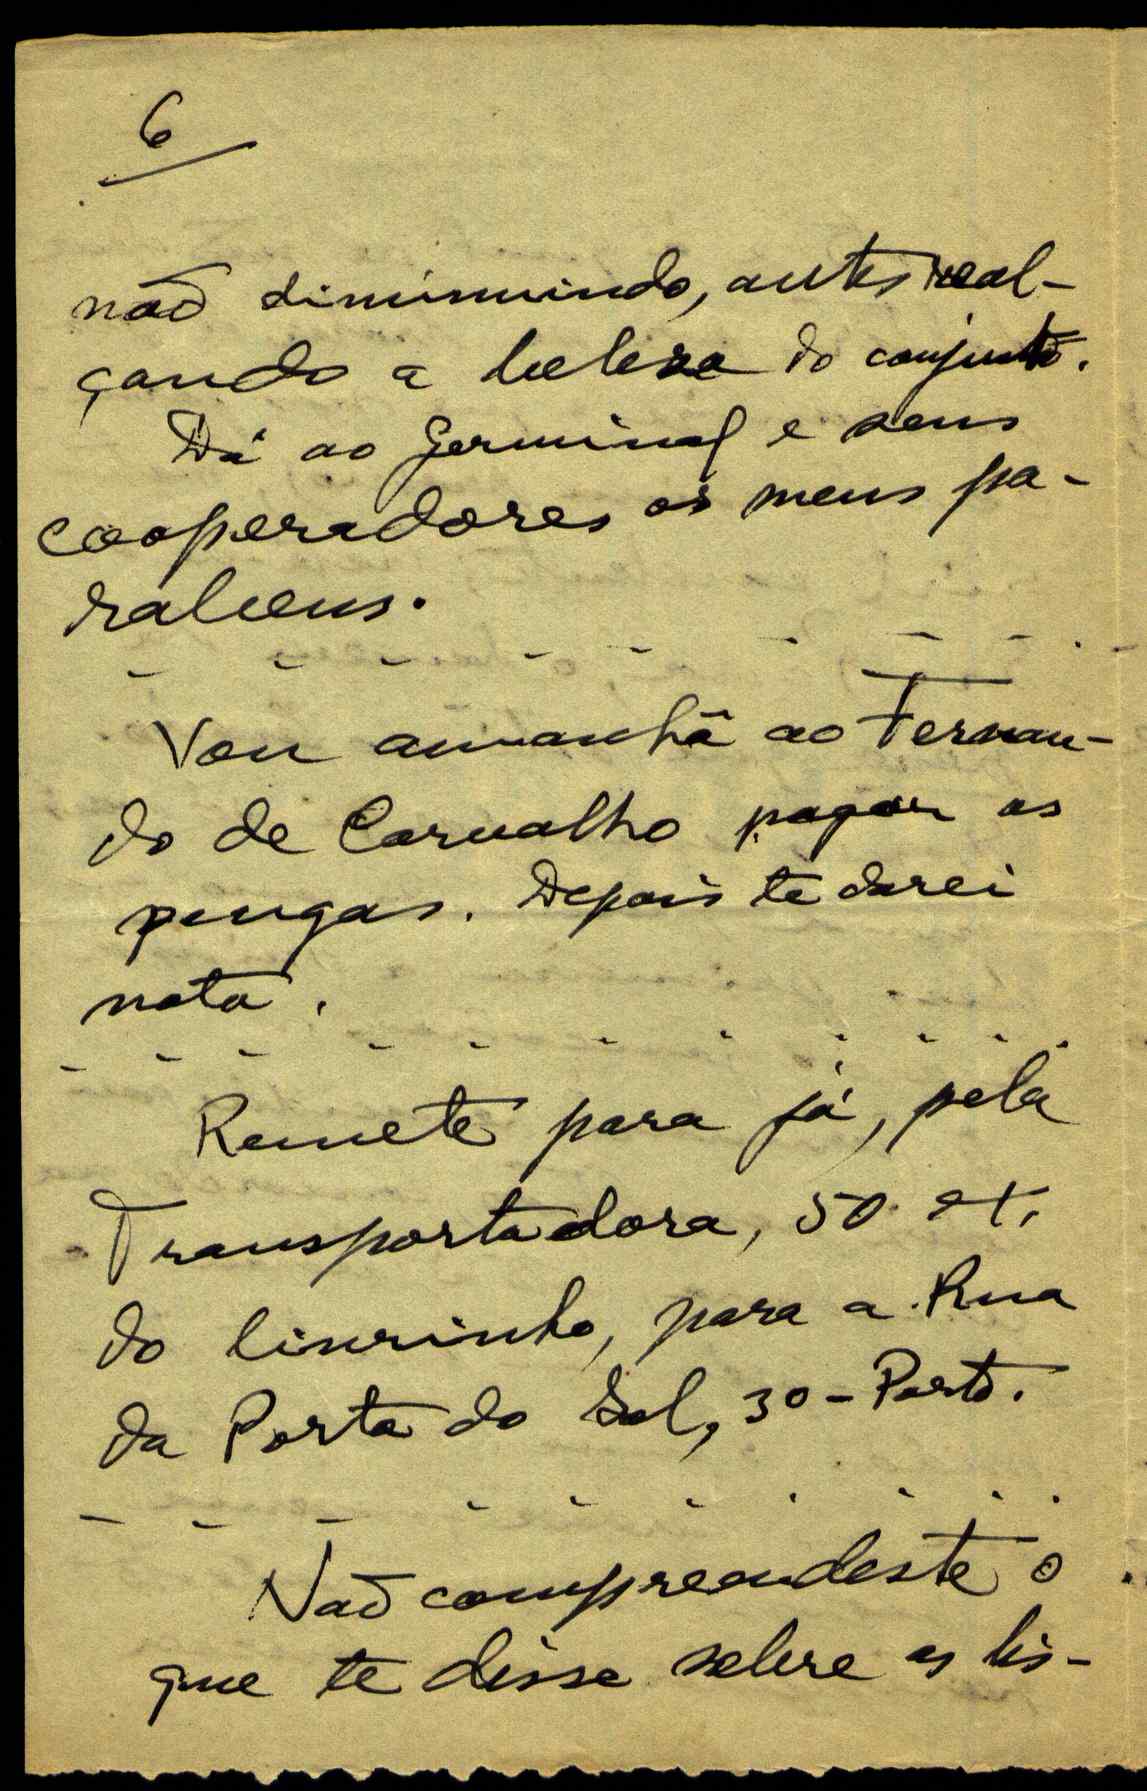 6
não diminuindo, antes real-
çando a beleza do conjunto.
Dá ao Germinal e seus
cooperadores os meus pa-
rabens.
Vou amanhã ao Fernan-
do de Carvalho pagar as
peugas. Depois te darei
nota.
Remete para já, pela
Transportadora, 50 ex.
do livrinho, para a Rua
da Porta do Sol, 30 - Porto.
Não compreendeste o
que te disse sobre as lis-